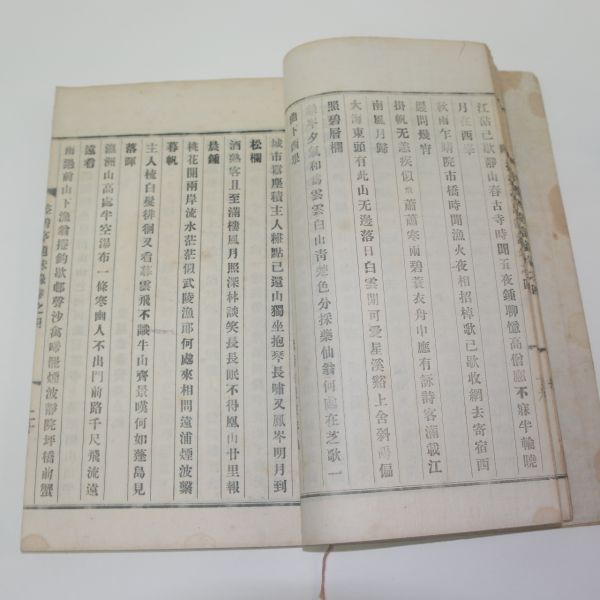 江沽已歇靜山春古寺時聞五夜鍾聊憶高僧應不寐半輪曉
月在西峯
秋雨乍晴院市橋時聞漁火夜相招棹歌已歇收網去寄宿西
巖問幾宵
掛帆无恙疾似蕭蕭寒雨碧蓑衣舟中應有詠詩客滿載江
南風月歸
大海東頭有此山无邊落日白雲開可愛星溪谿上舍斜陽偏
照碧層欄
夕氣和靄雲雲白山靑楚色分採藥仙翁何處在芝歌一
山下西
城市囂塵積主人粧點已還山獨坐抱琴長嘯又鳳岑明月到
松欄
酒熟客且至滿樓風月照深林談笑長長眠不得凰山廿里報
晨鍾
桃花開兩岸流水茫茫似武陵漁郞何處來相問遠浦煙波繫
暮帆
主人梳白髮徘徊又看暮雲飛不談牛山齊景嘆何如蓬島見
落暉
漁洲山高處半空瀑布一條寒幽人不出門前路千尺飛流遠
遠看
雨過前山下漁翁捲釣歇邨聲沙禽啼罷煙波靜院坪橋前蟹